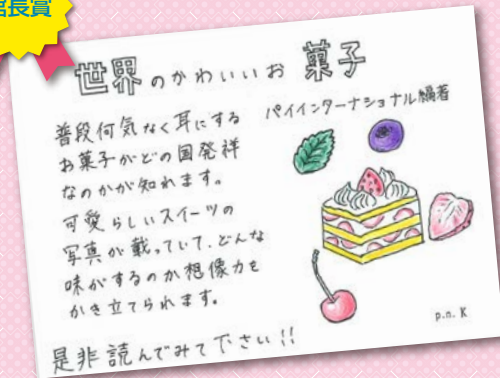 館長賞
世界のかわいいお菓子
パイインターナショナル編著
普段何気なく耳にする
お菓子がどの国発祥
なのかが知れます。
可愛らしいスイーツの
写真が載っていて、どんな
味がするのか想像力を
かき立てられます。
是非読んでみて下さい!!
p.n. K